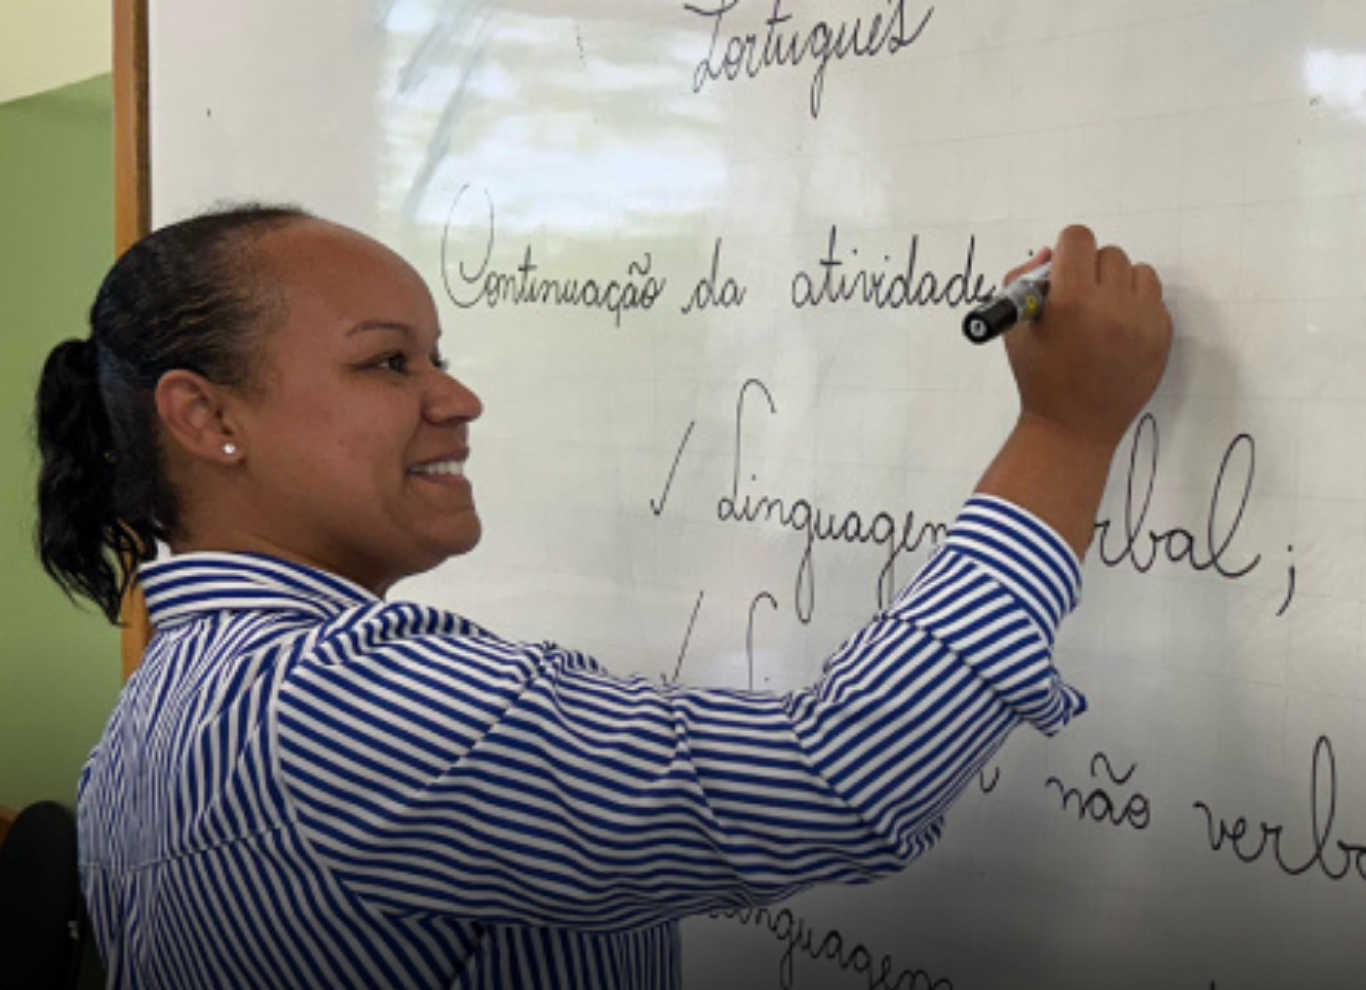 Português
Continuação da atividade
✓ Linguagem verbal;
✓
não
Linguagem